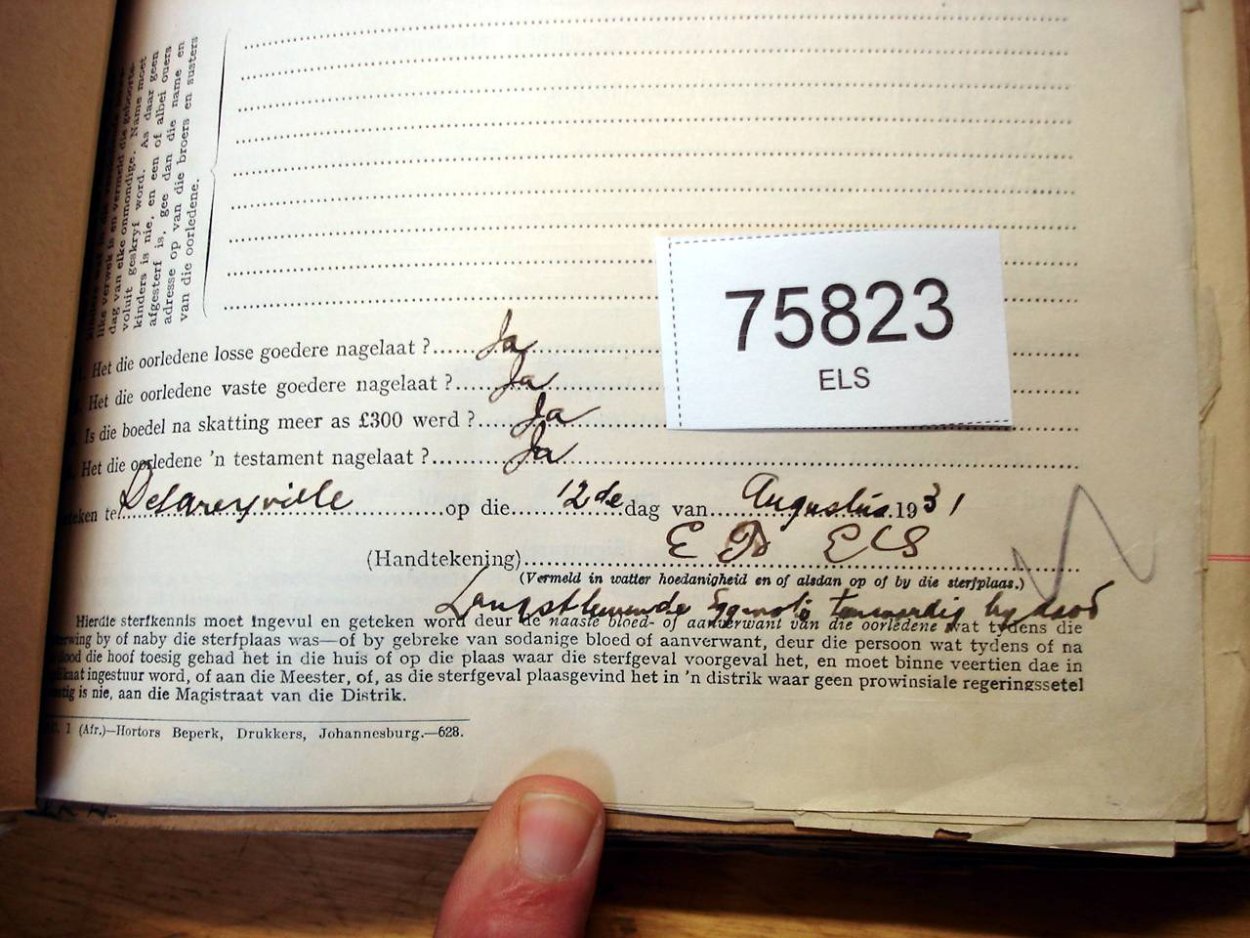 dag van elke onmondige. Name moet
voluit geskryf word. As daar geen
kinders is nie, en een of albei ouers
afgesterf is, gee dan die name en
adresse op van die broers en susters
van die oorledene.
75823
ELS
Het die oorledene losse goedere nagelaat ?......Ja
Het die oorledene vaste goedere nagelaat ?......Ja
Is die boedel na skatting meer as £300 werd ?......Ja
Het die oorledene 'n testament nagelaat ?......Ja
te Delareyville op die 12de dag van Augustus 1931
(Handtekening) E B ELS
(Vermeld in watter hoedanigheid en of alsdan op of by die sterfplaas.)
Langstlewende Eggenote teenwoordig by dood
Hierdie sterfkennis moet ingevul en geteken word deur die naaste bloed- of aanverwant van die oorledene wat tydens die
by of naby die sterfplaas was—of by gebreke van sodanige bloed of aanverwant, deur die persoon wat tydens of na
die hoof toesig gehad het in die huis of op die plaas waar die sterfgeval voorgeval het, en moet binne veertien dae in
ingestuur word, of aan die Meester, of, as die sterfgeval plaasgevind het in 'n distrik waar geen prowinsiale regeringssetel
is nie, aan die Magistraat van die Distrik.
1 (Afr.)—Hortors Beperk, Drukkers, Johannesburg.—628.